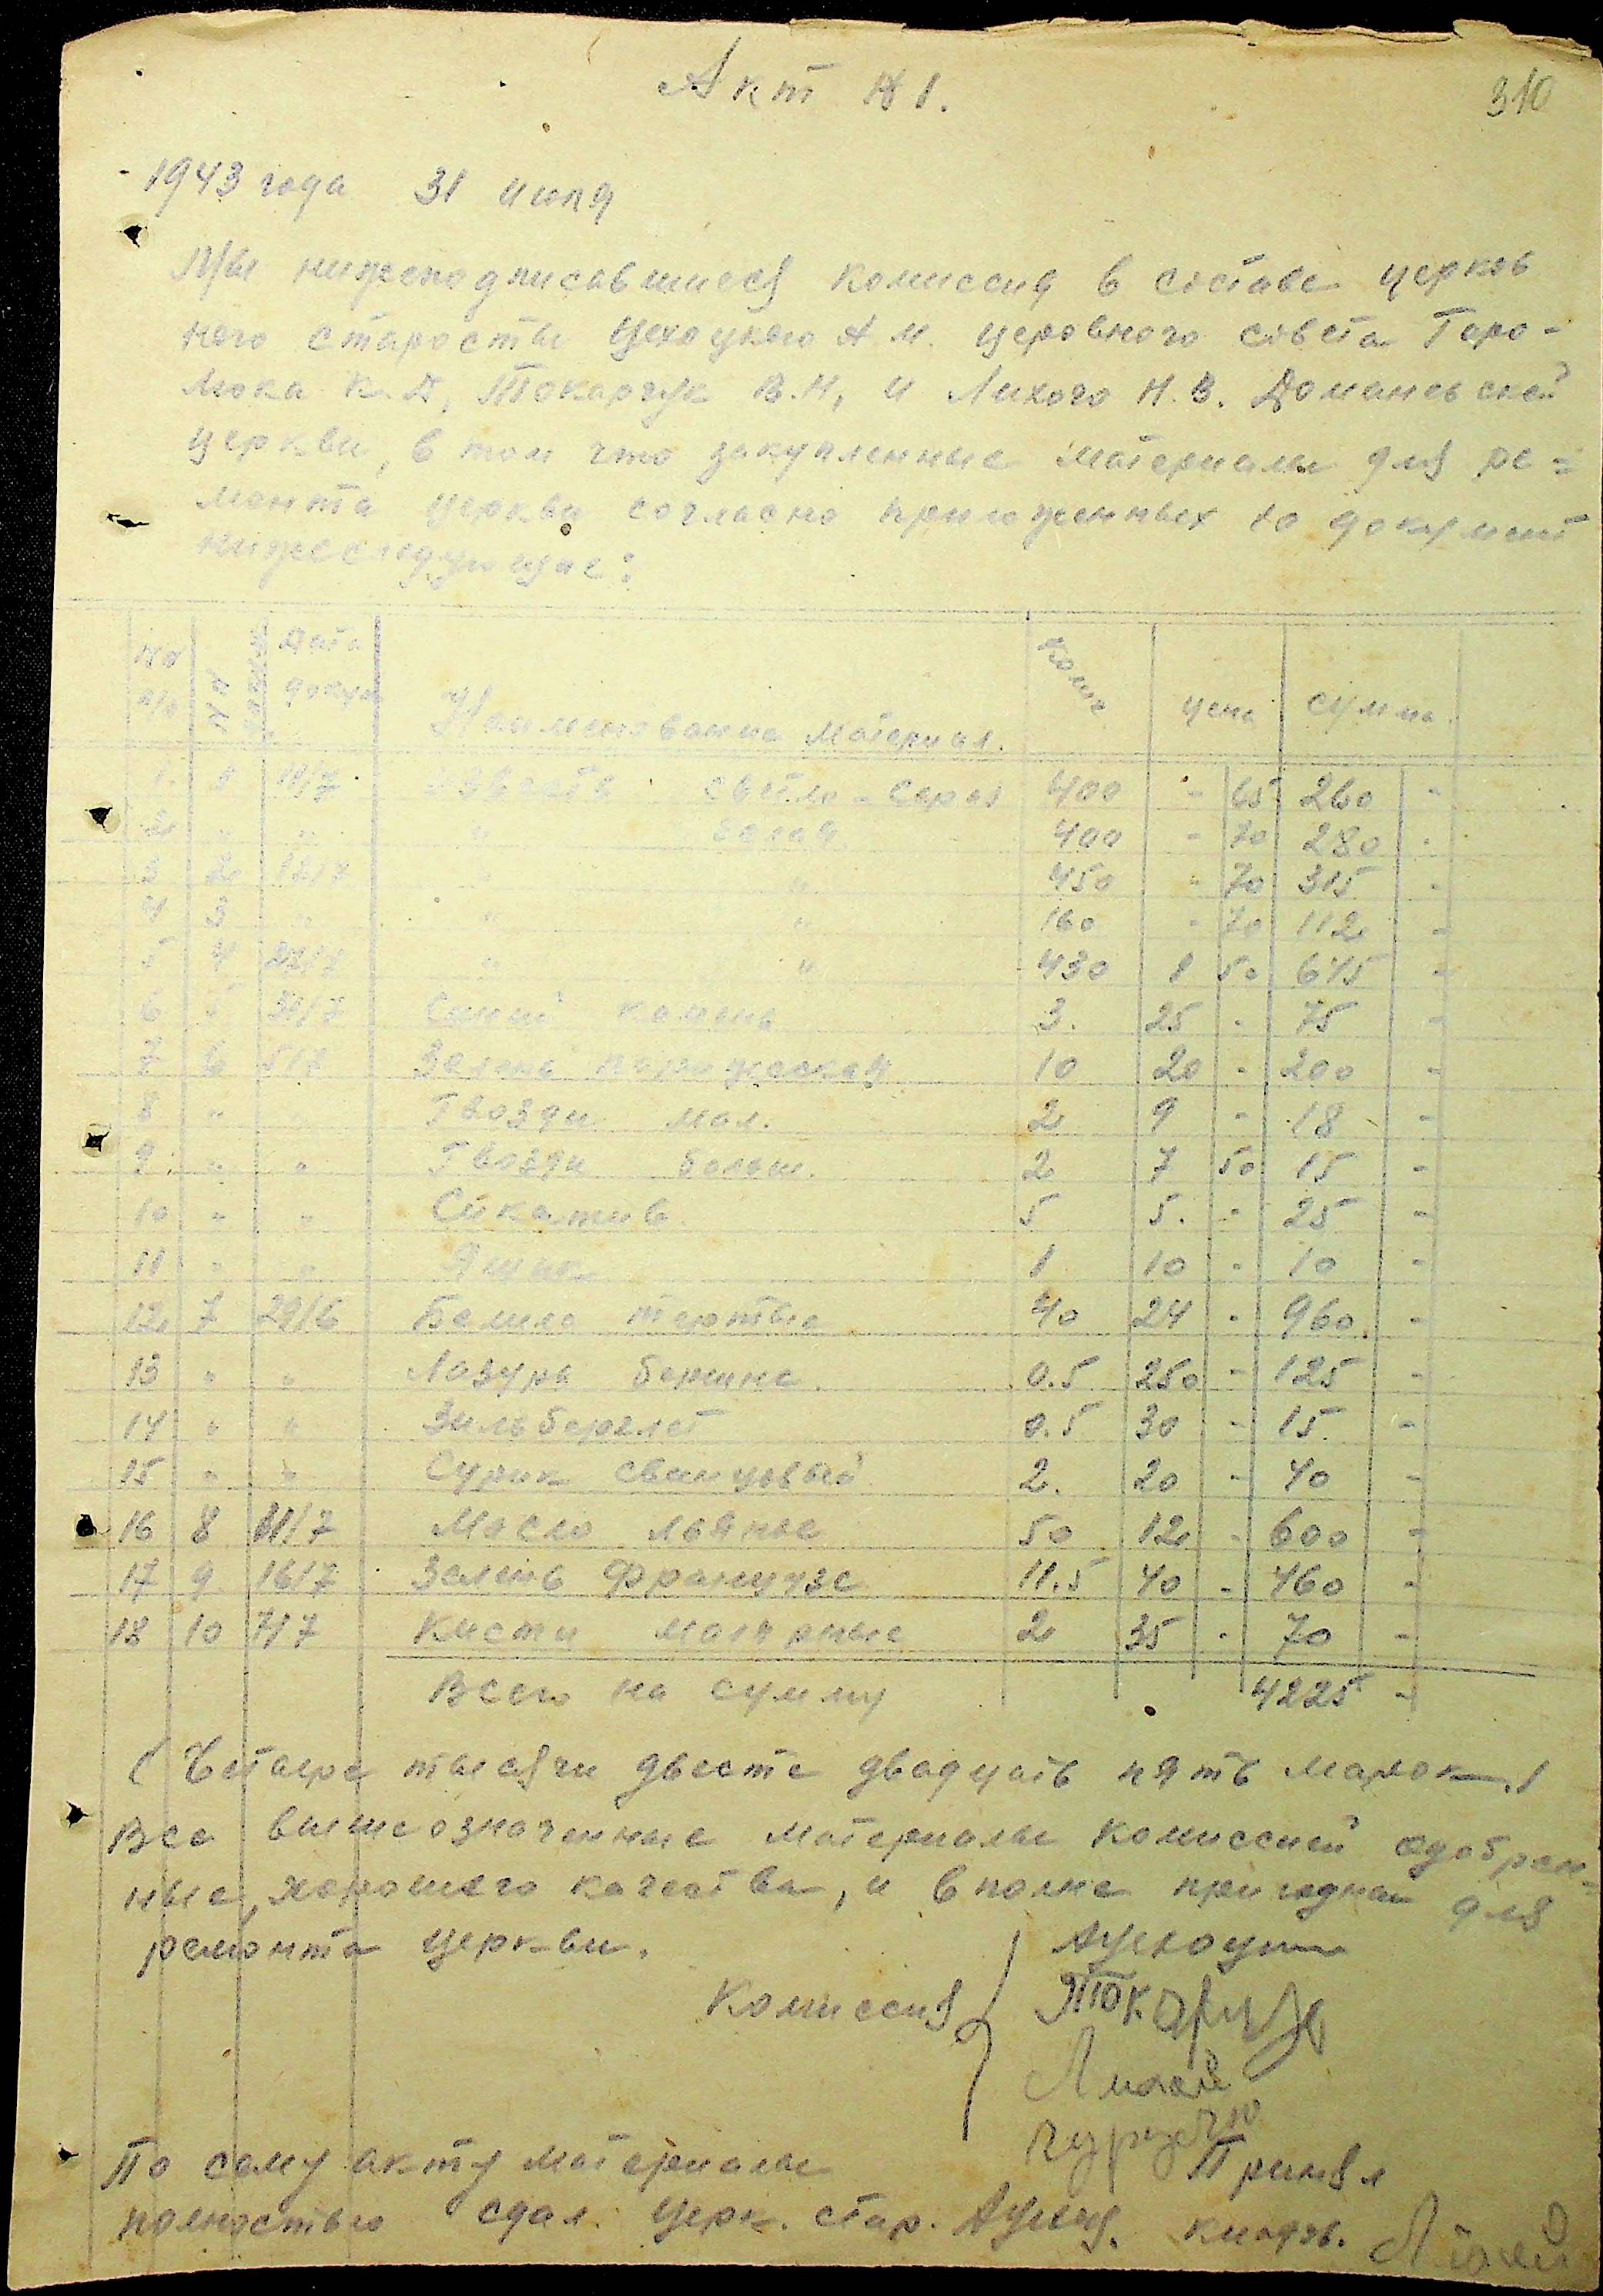 Акт № 1.
310
1943 года 31 июля
Мы нижеподписавшиеся комиссия в составе церков
ного старосты Цехоцкого А М. церовного совета Гаро-
люка К. А, Токарчук В. Н, и Лихого Н. В. Доманевской
церкви, в том что закупленные материалы для ре=
монта церкви согласно приложенных 10 документ
нижеследующие:
№№ п/п №№ Дата докум Наименование материал. Колич цена сумма
1. 1 19/7 Известь светло-серая 400 - 65 260 -
2 " " " белая 400 - 70 280 -
3 2 12/7 " " 450 - 70 315 -
4 3 " " " 160 - 70 112 -
5 4 27/7 " " 430 1 50 645 -
6 5 31/7 Синий камень 3. 25 - 75 -
7 6 5/7 Зелень парижская 10 20 - 200 -
8 " " Гвозди мал. 2 9 - 18 -
9 " " Гвозди больш. 2 7 50 15 -
10 " " Сикатив. 5 5. - 25 -
11 " " Ящик 1 10 - 10 -
12 7 29/6 Белила тертые 40 24 - 960. -
13 " " Лазурь берлине. 0.5 250 - 125 -
14 " " Зильберглет 0.5 30 - 15. -
15 " " Сурик свинцовый 2. 20 - 40 -
16 8 11/7 Масло льяное 50 12 - 600 -
17 9 16/7 Зелень Французс 11.5 40 - 460 -
18 10 7/7 Кисти малярные 2 35 - 70 -
Всего на сумму 4225 -
(Четыре тысячи двести двадцать пять марок.)
Все вышеозначенные материалы комиссией одобрен=
ные, хорошего качества, и вполне пригодны для
ремонта церкви.
Комиссия
Токарчук
Лихой
По сему акту материалы Принял
полностью сдал. Церк. стар. кладов. Лихой